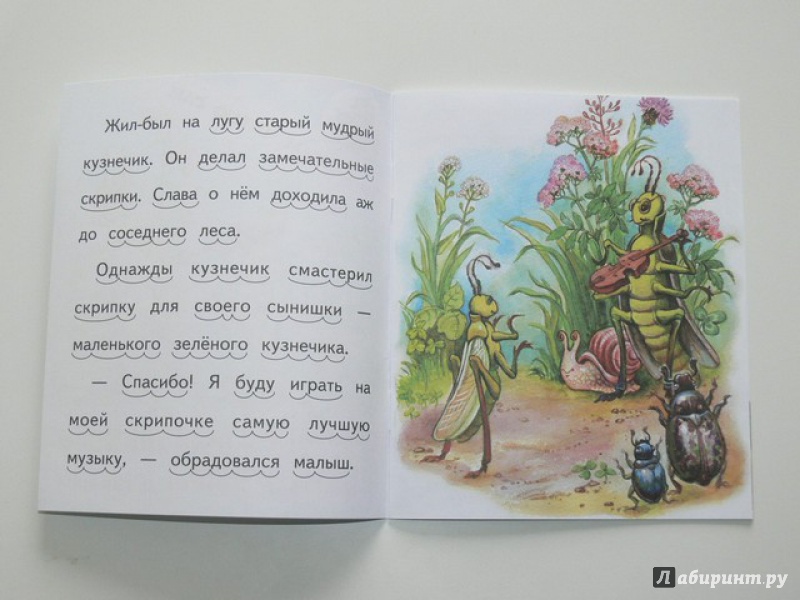 Жил-был на лугу старый мудрый
кузнечик. Он делал замечательные
скрипки. Слава о нём доходила аж
до соседнего леса.
Однажды кузнечик смастерил
скрипку для своего сынишки —
маленького зелёного кузнечика.
— Спасибо! Я буду играть на
моей скрипочке самую лучшую
музыку, — обрадовался малыш.
Лабиринт.ру